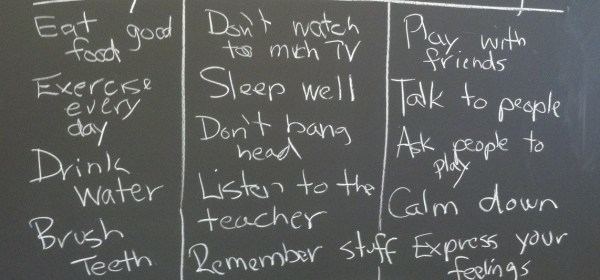 Eat good
food
Exercise
every
day
Drink
Water
Brush
Teeth
Don't watch
too much TV
Sleep well
Don't bang
head
Listen to the
teacher
Remember stuff
Play with
friends
Talk to people
Ask people to
play
Calm down
Express your
feelings